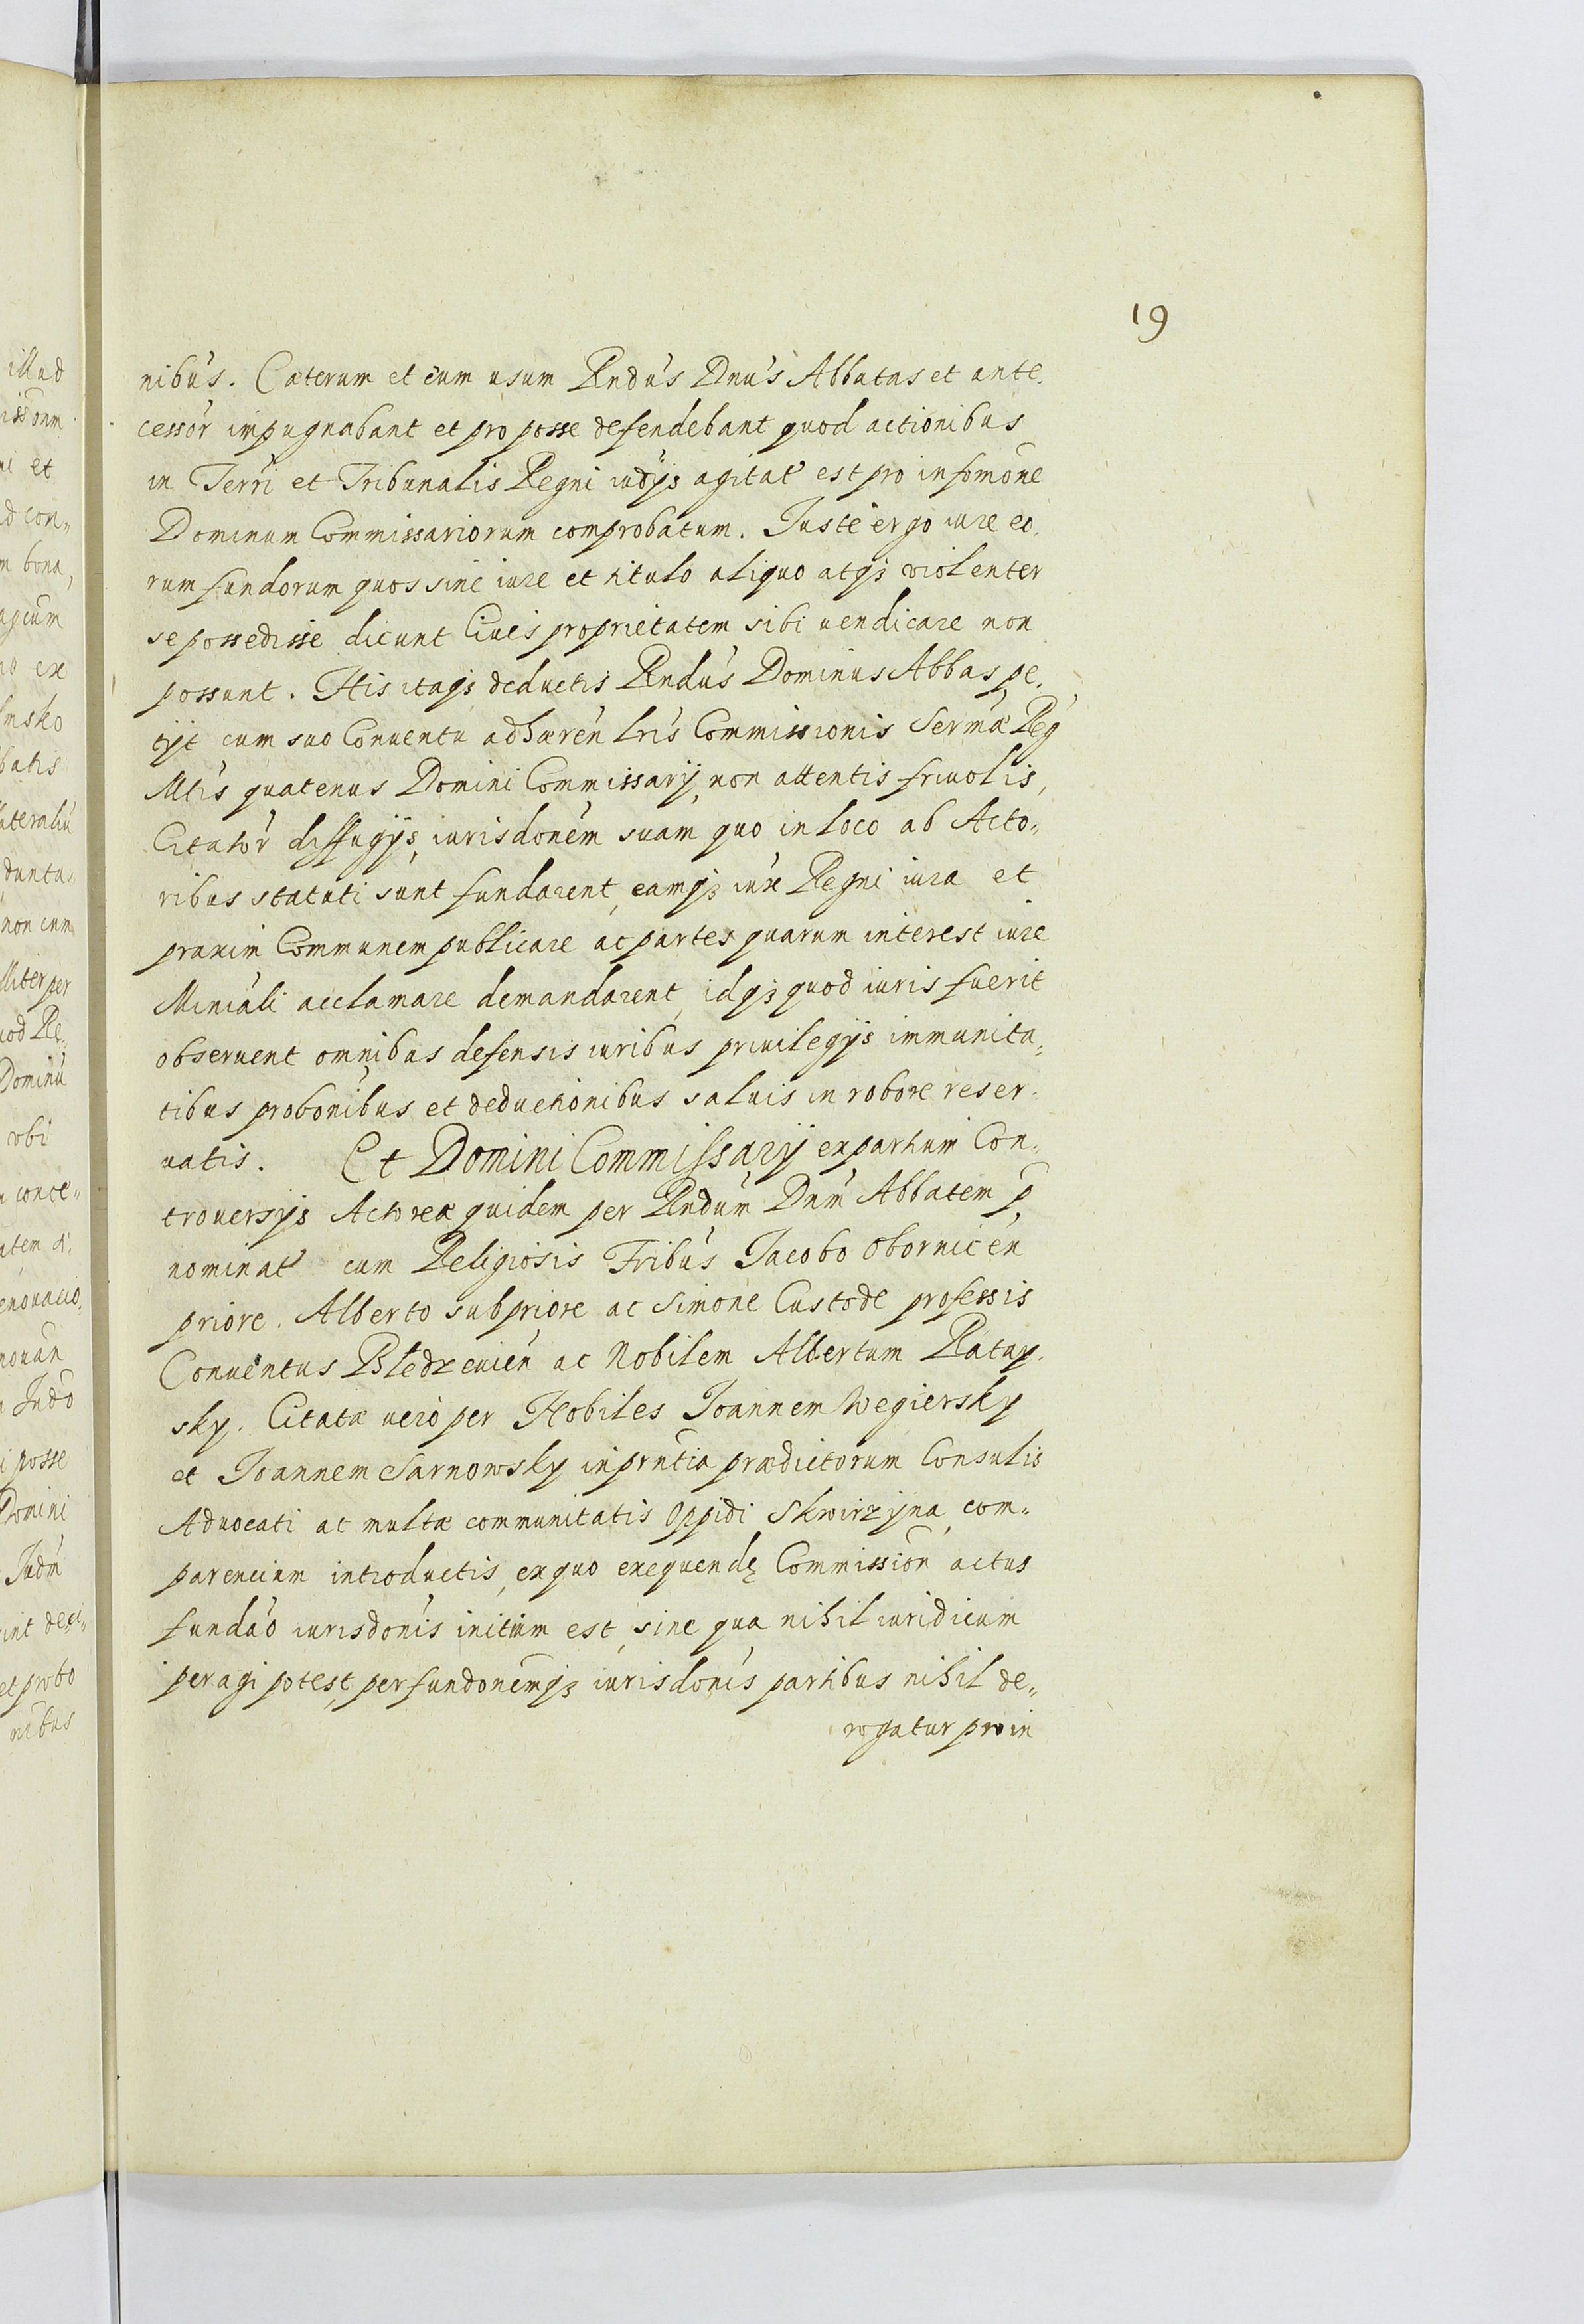 19
nibus. Cæterum et eum usum Rndus Dnus Abbatas et ante,
cessor impugnabant et pro posse defendebant quod actionibus
in Terri et Tribunalis Regni iudÿs agitat est pro informone
Dominum Commissariorum comprobatum. Juste ergo iure eo,
rum fundorum quos sine iure et titulo aliquo atqs violenter
se possedisse dicunt Ciues proprietatem sibi uendicare non
possunt. His itaqs deductis Rndus Dominus Abbas pe,
tÿt cum suo Conuentu adhæren lris Commissionis Sermæ Reg
Mtis quatenus Domini Commissarÿ, non attentis friuolis,
Citator diffugÿs, iurisdonem suam quo in loco ab Acto„
ribus statuti sunt fundarent, eamqs iux Regni iura et
praxim Communem publicare ac partes quarum interest iure
Miniali acclamare demandarent, idqs quod iuris fuerit
obseruent omnibus defensis iuribus priuilegÿs immunita„
tibus probonibus et deductionibus saluis in robore reser„
uatis. Et Domini Commissarÿ ex partium Con„
trouersÿs Actoreæ quidem per Rndum Dnm Abbatem p
nominat cum Religiosis Fribus Jacobo Obornicen
priore. Alberto subpriore ac Simone Custode professis
Conuentus Bledzeuien ac Nobilem Albertum Ratay,
sky. Citatæ uero per Nobiles Joannem Wegiersky
et Joannem Sarnowsky in prntia prædictorum Consulis
Aduocati ac multæ communitatis Oppidi Skwirzyna com„
parencium introductis, ex quo exequendę Commission actus
fundao iurisdonis initium est, sine qua nihil iuridicum
peragi potest, per fundonemqs iurisdonis partibus nihil de„
rogatur proin